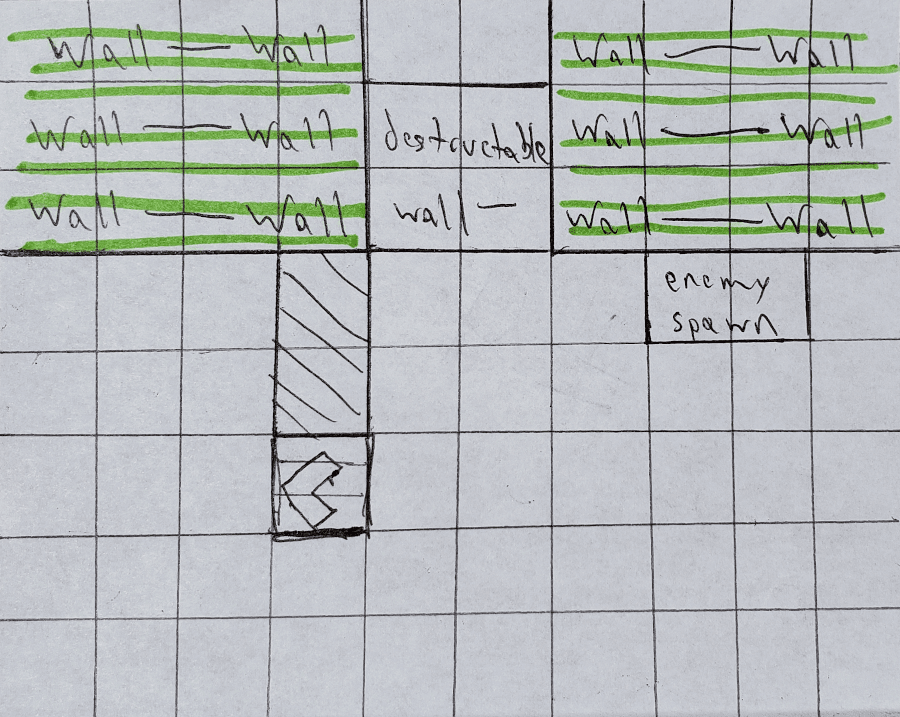 Wall — Wall
Wall — Wall
Wall — Wall
destructable
wall —
Wall — Wall
Wall — Wall
Wall — Wall
enemy
spawn